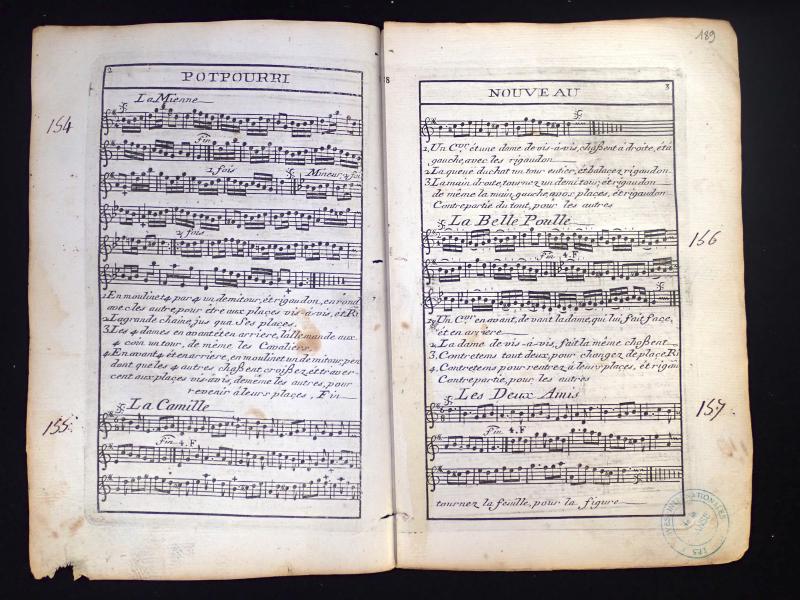 2
POTPOURRI
154
La Mienne
Fin
2 fois
Mineur 2 foi
2 fois
1 En moulinet 4 par 4 un demi tour, et rigaudon, en rond
avec les autre pour etre aux plaçes vis-à-vis, et Ri
2 La grande chaîne, jus qua ses plaçes
3. Les 4 dames en avant et en arriere, l'allemande aux
4 coin un tour, de même les Cavaliers
4. En avant 4 et en arriere, en moulinet un demi tour, pen
dont que les 4 autres chaßent croißez et traver-
cent aux plaçes vis-avis, demême les autres, pour
revenir à leurs plaçes, Fin
155
La Camille
Fin 4. F
189
78
NOUVEAU
3
1, Un Cer et une dame de vis-à-vis, chaßent à droite, et à
gauche, avec les rigaudon
2 La queue du chat un tour entier, et balacez rigaudon
3. La main droite, tournez un demi tour, et rigaudon
de même la main gauche, a nos plaçes, et rigaudon
Contre partie du tout, pour les autres
La Belle Poulle
156
Fin 4. F
Un Cer en avant, de vant la dame, qui lui fait façe,
et en arriere
2 La dame de vis-à-vis, fait la même chaßent
3. Contretems tout deux, pour changez de plaçe, Ri
4. Contretems pour rentrez à leurs plaçes, et rigau
Contre partie, pour les autres
Les Deux Amis
157
Fin 4. F
tournez la feuille, pour la figure
NATIONALES